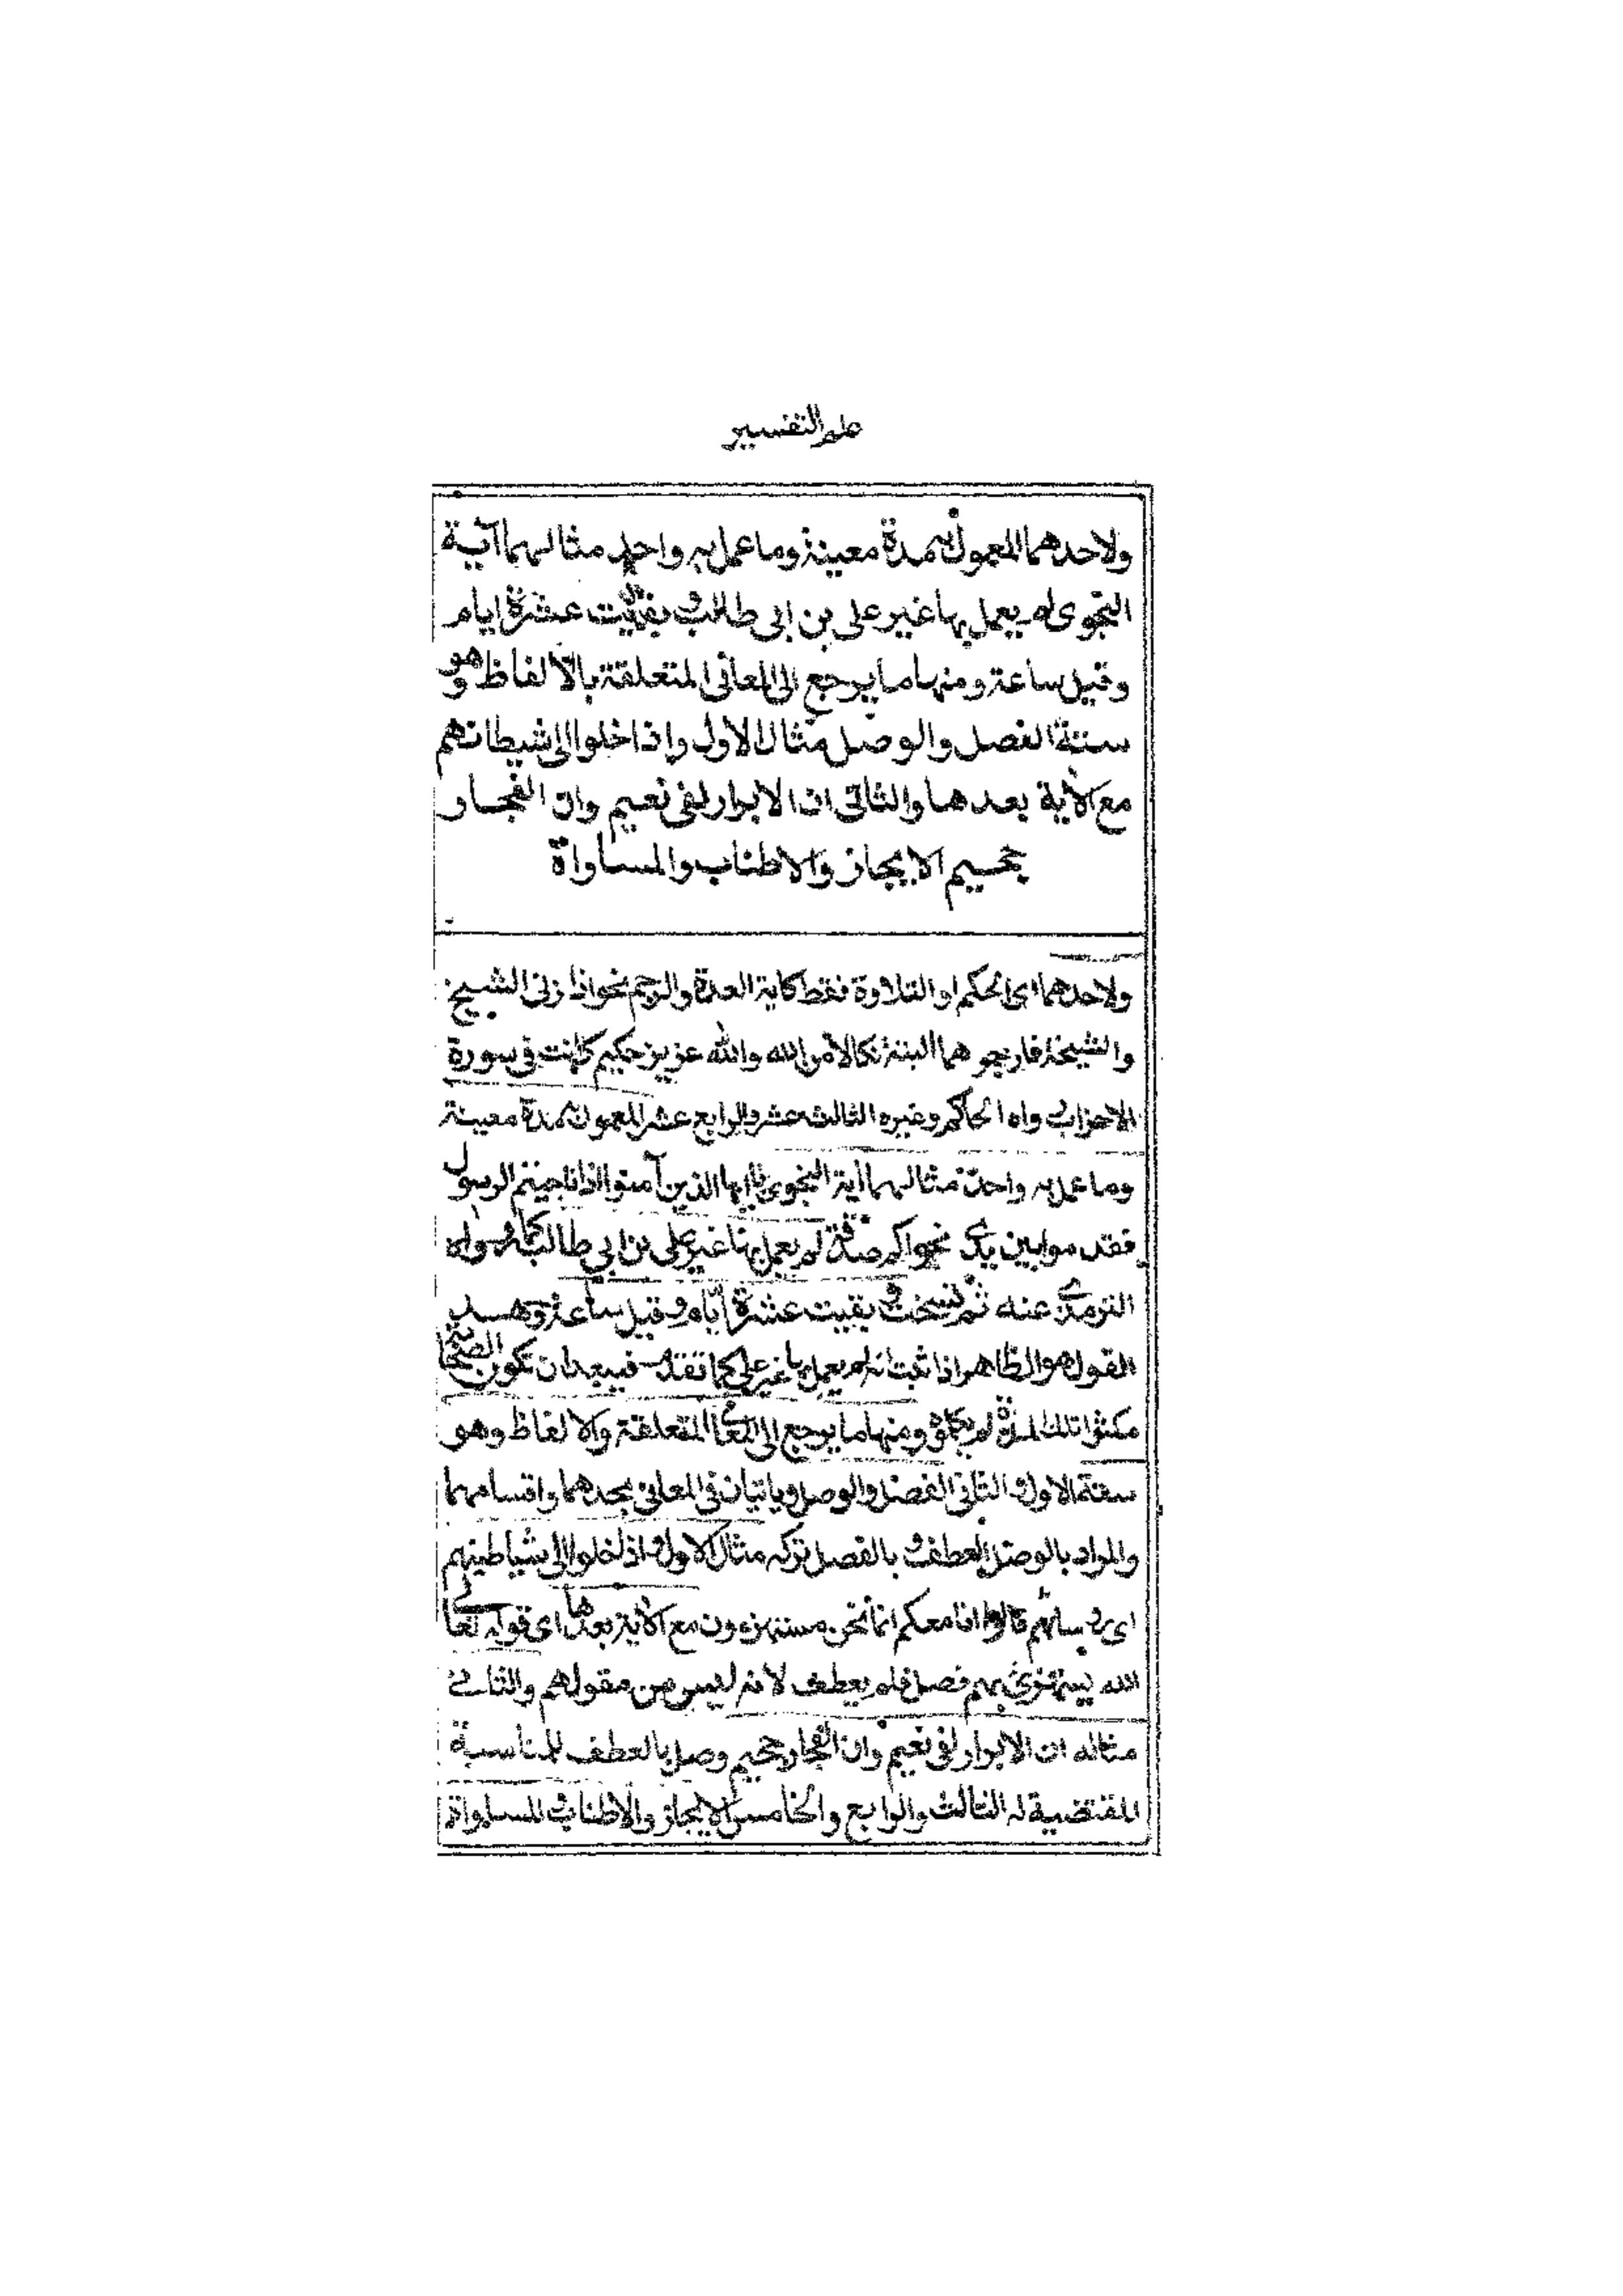 علم التفسير
ولاحدهما المعمول بمدة معينة وما عمل به واحد مثالهما آية
النجوى لم يعمل بها غير على بن ابى طالب وبقيت عشرة ايام
وقيل ساعة ومنها ما يرجع الى المعانى المتعلقة بالالفاظ وهو
ستة الفصل والوصل مثال الاول واذا خلوا الى شيطانهم
مع الآية بعدها والثانى ان الابرار لفى نعيم وان الفجار
جحيم الايجاز والاطناب والمساواة
ولاحدهما اى الحكم او التلاوة فقط كاية العدة والرجم نحو اذا زنى الشيخ
والشيخة فارجموهما البتة نكالا من الله والله عزيز حكيم كانت فى سورة
الاحزاب رواه الحاكم وغيره الثالث عشر والرابع عشر المعمول بمدة معينة
وما عمل به واحد مثالهما أية النجوى يا ايها الذين آمنوا اذا ناجيتم الرسول
فقدموا بين يدى نجواكم صدقة لم يعمل بها غير على بن ابى طالب كما رواه
الترمذى عنه ثم نسخت وبقيت عشرة أيام وقيل ساعة وهـــ
القول هو الظاهر اذا ثبت انه لم يعمل بها غير على كما تقدم فيبعد ان تكون الصحابة
مكثوا تلك المدة لم يكلموه ومنها ما يرجع الى المعانى المتعلقة والالفاظ وهو
ستة الاول والثانى الفصل والوصل وياتيان فى المعانى بحدهما واقسامهما
والمراد بالوصل العطف وبالفصل تركه مثال الاول واذا خلوا الى شياطينهم
اى رؤسائهم قالوا انا معكم انما نحن مستهزءون مع الآية بعدها اى قوله تعالى
الله يستهزئ بهم فصل فلم يعطف لانه ليس من مقولهم والثانى
مثاله ان الابرار لفى نعيم وان الفجار جحيم وصل بالعطف للمناسبة
المقتضية له الثالث والرابع والخامس الايجاز والاطناب والمساواة